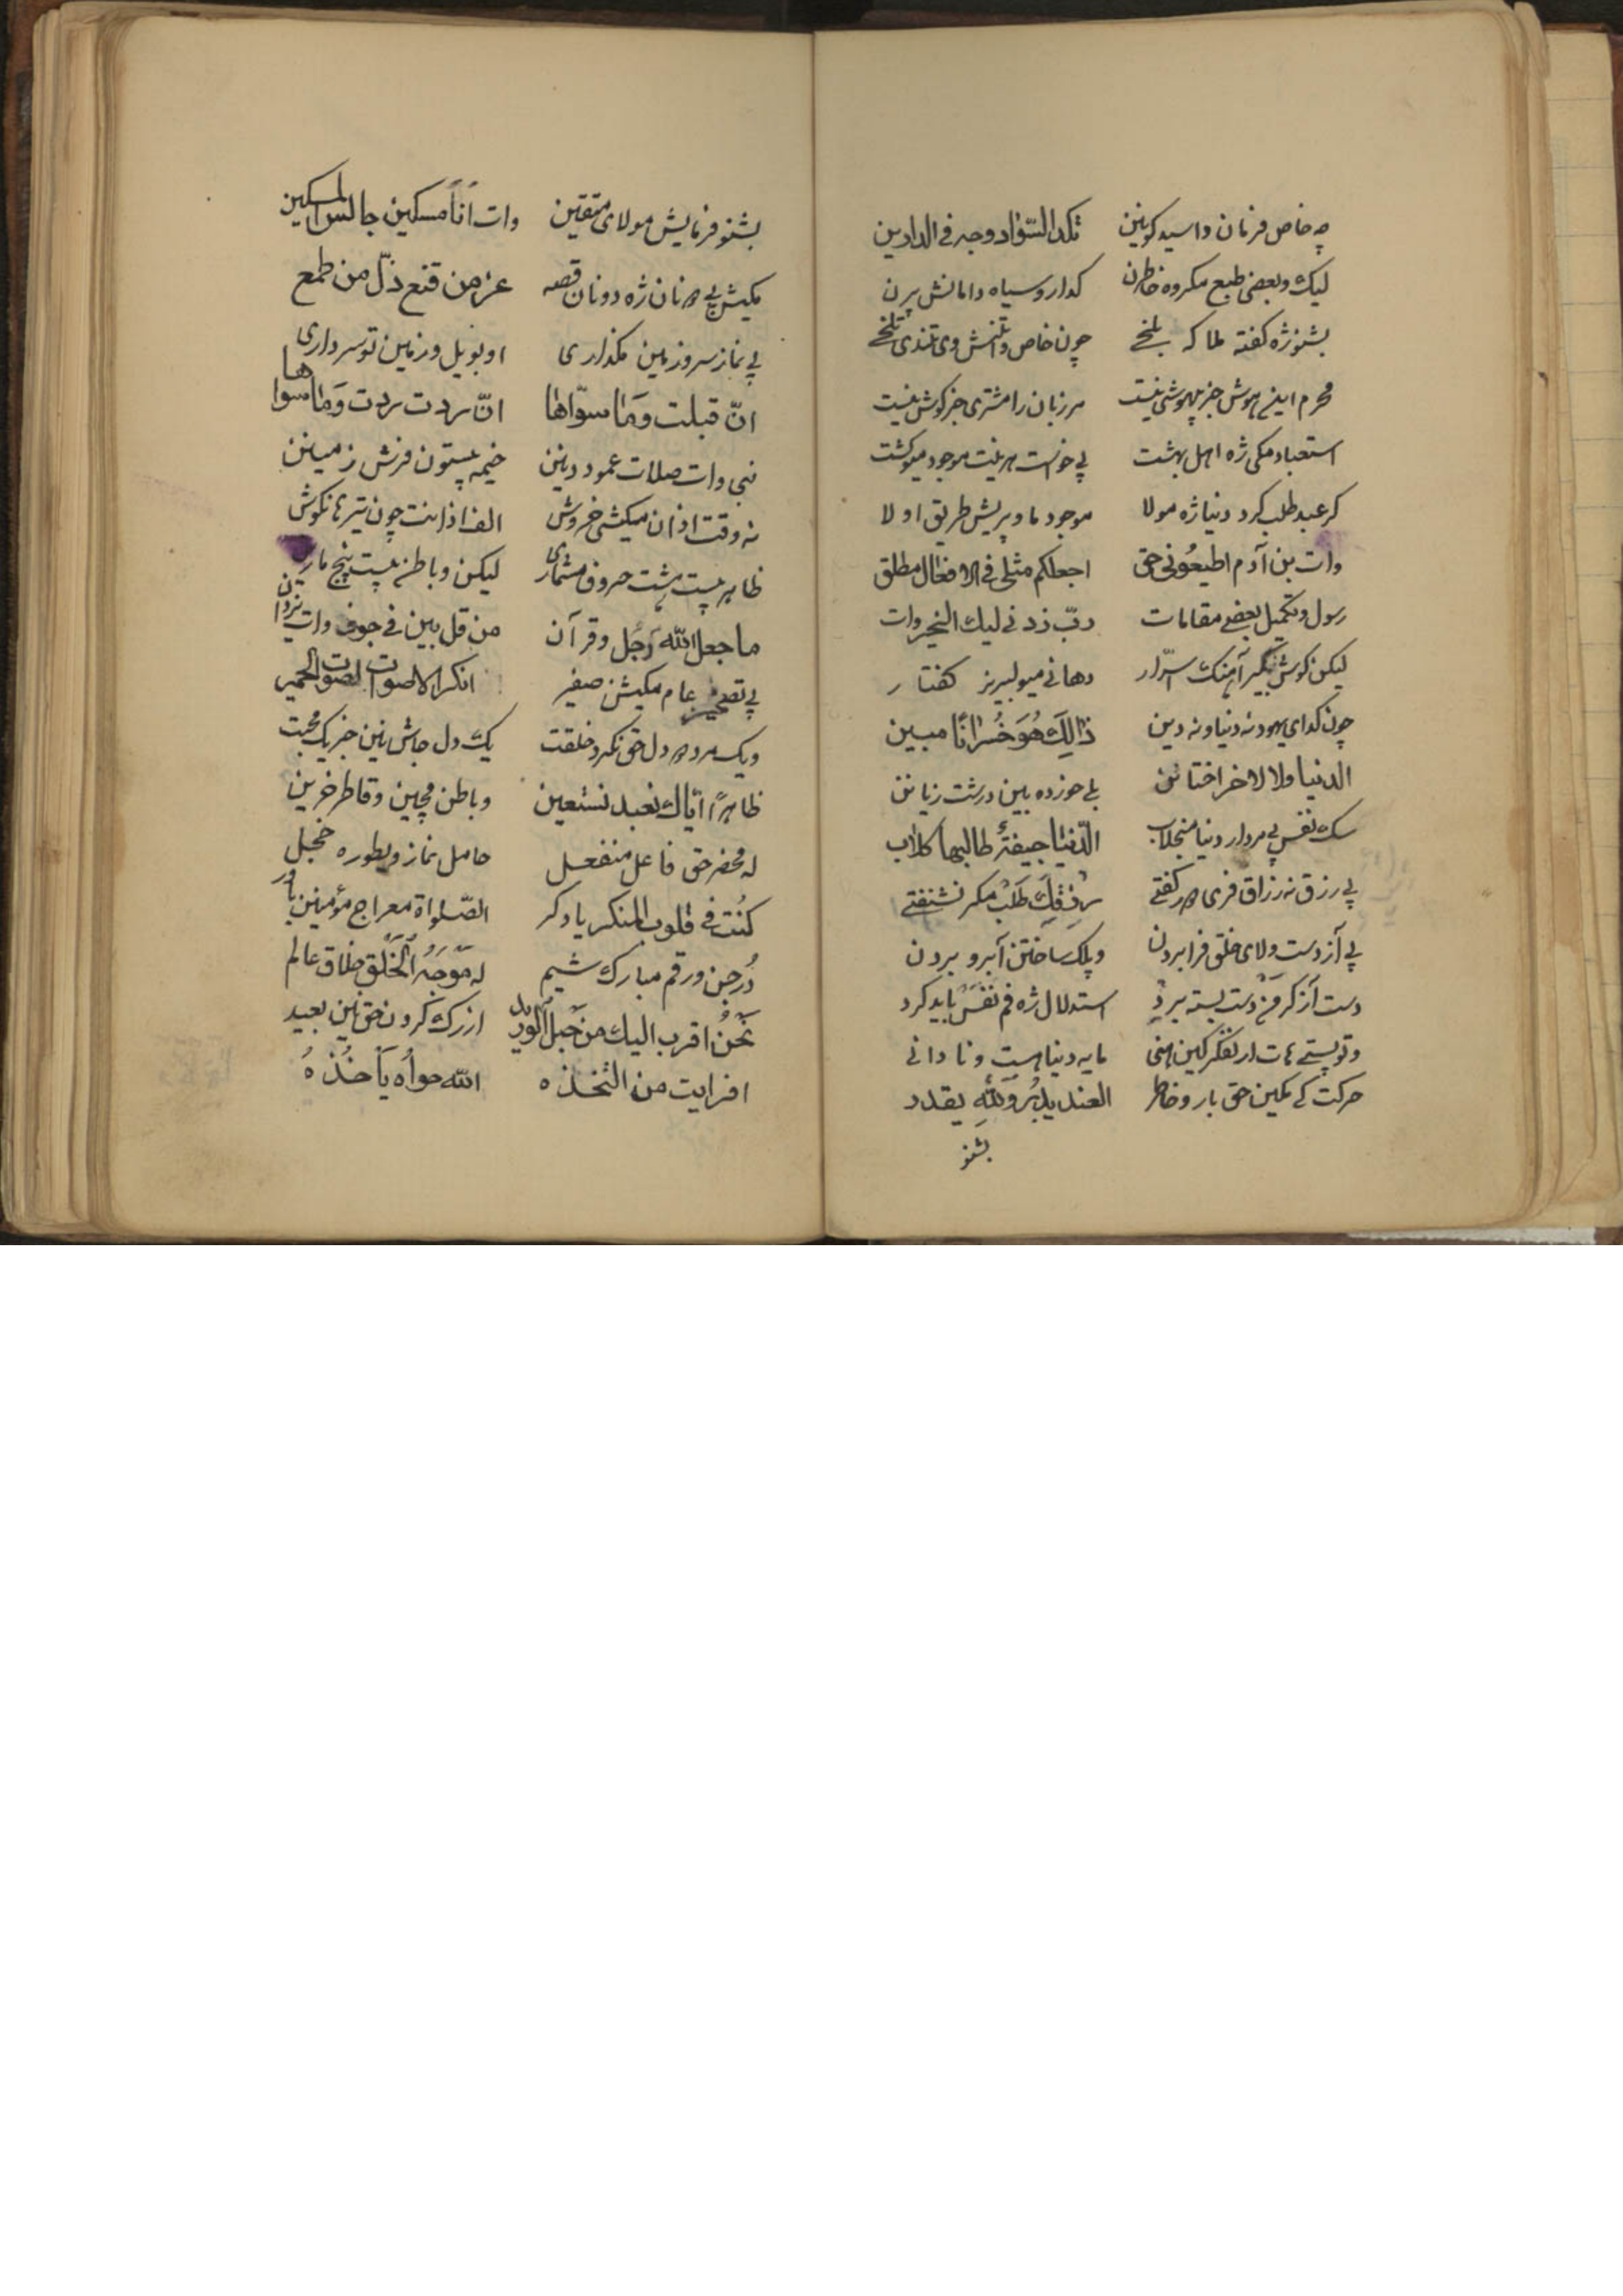 چه خاص فرمان وا سید کونین تکدالسّؤاد وجه فی الدارین
لیک وبعضی طبع مکروه خاطرن کدا روسیاه دامانش برن
بشنو ژه کفته ملا که بلخی چون خاص واتنش وی تندی تلخی
محرم این هوش جز بیهوشی نیست مرزبان را مشتری جز کوش نیست
استعباد مکی ژه اهل بهشت پی خواست هرنیت موجود میوکشت
کر عبد طلب کرد دنیا ژه مولا موجود ماو پریش طریق اولا
وات بن آدم اطیعُونی حق اجعلکم مثلی فی الافعال مطلق
رسول وتکمیل بعضی مقامات ربّ زدنی لیك الخیر وات
لیکن کوش نکیر آهنک اسرّار دهانی میو لبریز کفتار
چون کدای یهود نه دنیا ونه دین ذالِكَ هُوَ خُسرانًا مبین
الدنیا ولا لاخر اختانن بلی حوزده بین درشت زیانن
سک نفس پی مردار دنیا منجلاب الدّنیا جیفتهٔ طالبها کلاب
پی رزق نه رزاق فری هر کفتی رزقِكَ طَلَبَ مکر نشنفتی
پی آز دست ولای خلق فرا بردن وپلک ساختن آبرو بردن
دست آز کر دست بسته بردِ استدلال ژه فم نفس باید کرد
مایه دنیا هست ونادانی
حرکت کی مکین حق بار وخاطر العند یدبُر وللهِ یقدد
بشنو
بشنو فرمایش مولای متقین وات اناً مسکین جالس المسکین
مکیش پی هر نان ژه دونان قصه عز من قنع ذلّ من طمع
پی نماز سر وزمین مکذاری او بوبیل ورزمین تو سرداری
انّ قبلت وَما سوّاها انّ ردت ردت وَما سواها
نبی وات صلات عمود دینن خیمه بیستون فرش زمینن
نه وقت اذان میکیشی خروش الف اذانت چون تیر مانکوش
ظاهر بیست هشت حروف مشماری لیکن وباطن بیست پنج ماری
ما جعل الله رَجُل وقرآن من قلبین فی جوف وات یزدان
پی تصحیز عام مکیشن صفیر انکر الاصوات لصوت الحمیر
ویک مرد هر دل حق نکرد خلقت یک دل جاش نین جز یک محبت
ظاهرًا ایّاك نعبد نستعین وباطن مچین وقاطر خرین
له محضر حق فاعل منفعل حامل نماز وبطوره خجل
کُنت فی قلوب المنکر یادکر الصّلواة معراج مؤمنین باور
دُرجن ورقم مبارک شیم له مَوجَهُ الخَلق خلاق عالم
نَحنُ اقرب الیك من حَبل الوریدل ازرک کردن حق نین بعید
افرایت من التخذه الله هواُه یَأخُذهُ